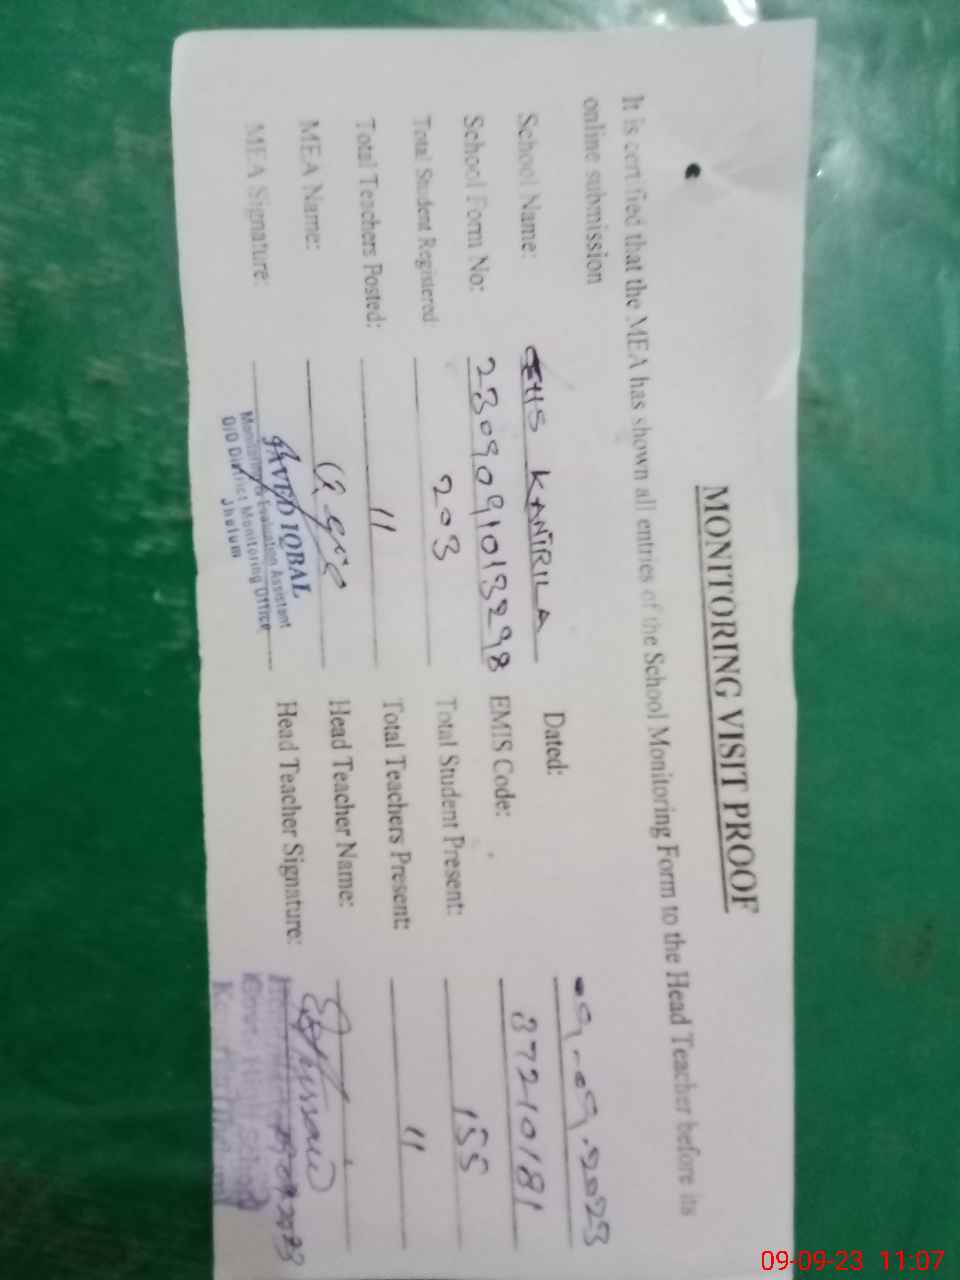 MONITORING VISIT PROOF
It is certified that the MEA has shown all entries of the School Monitoring Form to the Head Teacher before its
online submission
School Name: GHS KANTRILA Dated: 09-09-2023
School Form No: 2309091013298 EMIS Code: 37210181
Total Student Registered 203 Total Student Present: 155
Total Teachers Posted: 11 Total Teachers Present: 11
MEA Name: Head Teacher Name:
MEA Signature: Head Teacher Signature:
JAVED IQBAL
Monitoring & Evaluation Assistant
O/O District Monitoring Office
Jhelum
09-09-23 11:07